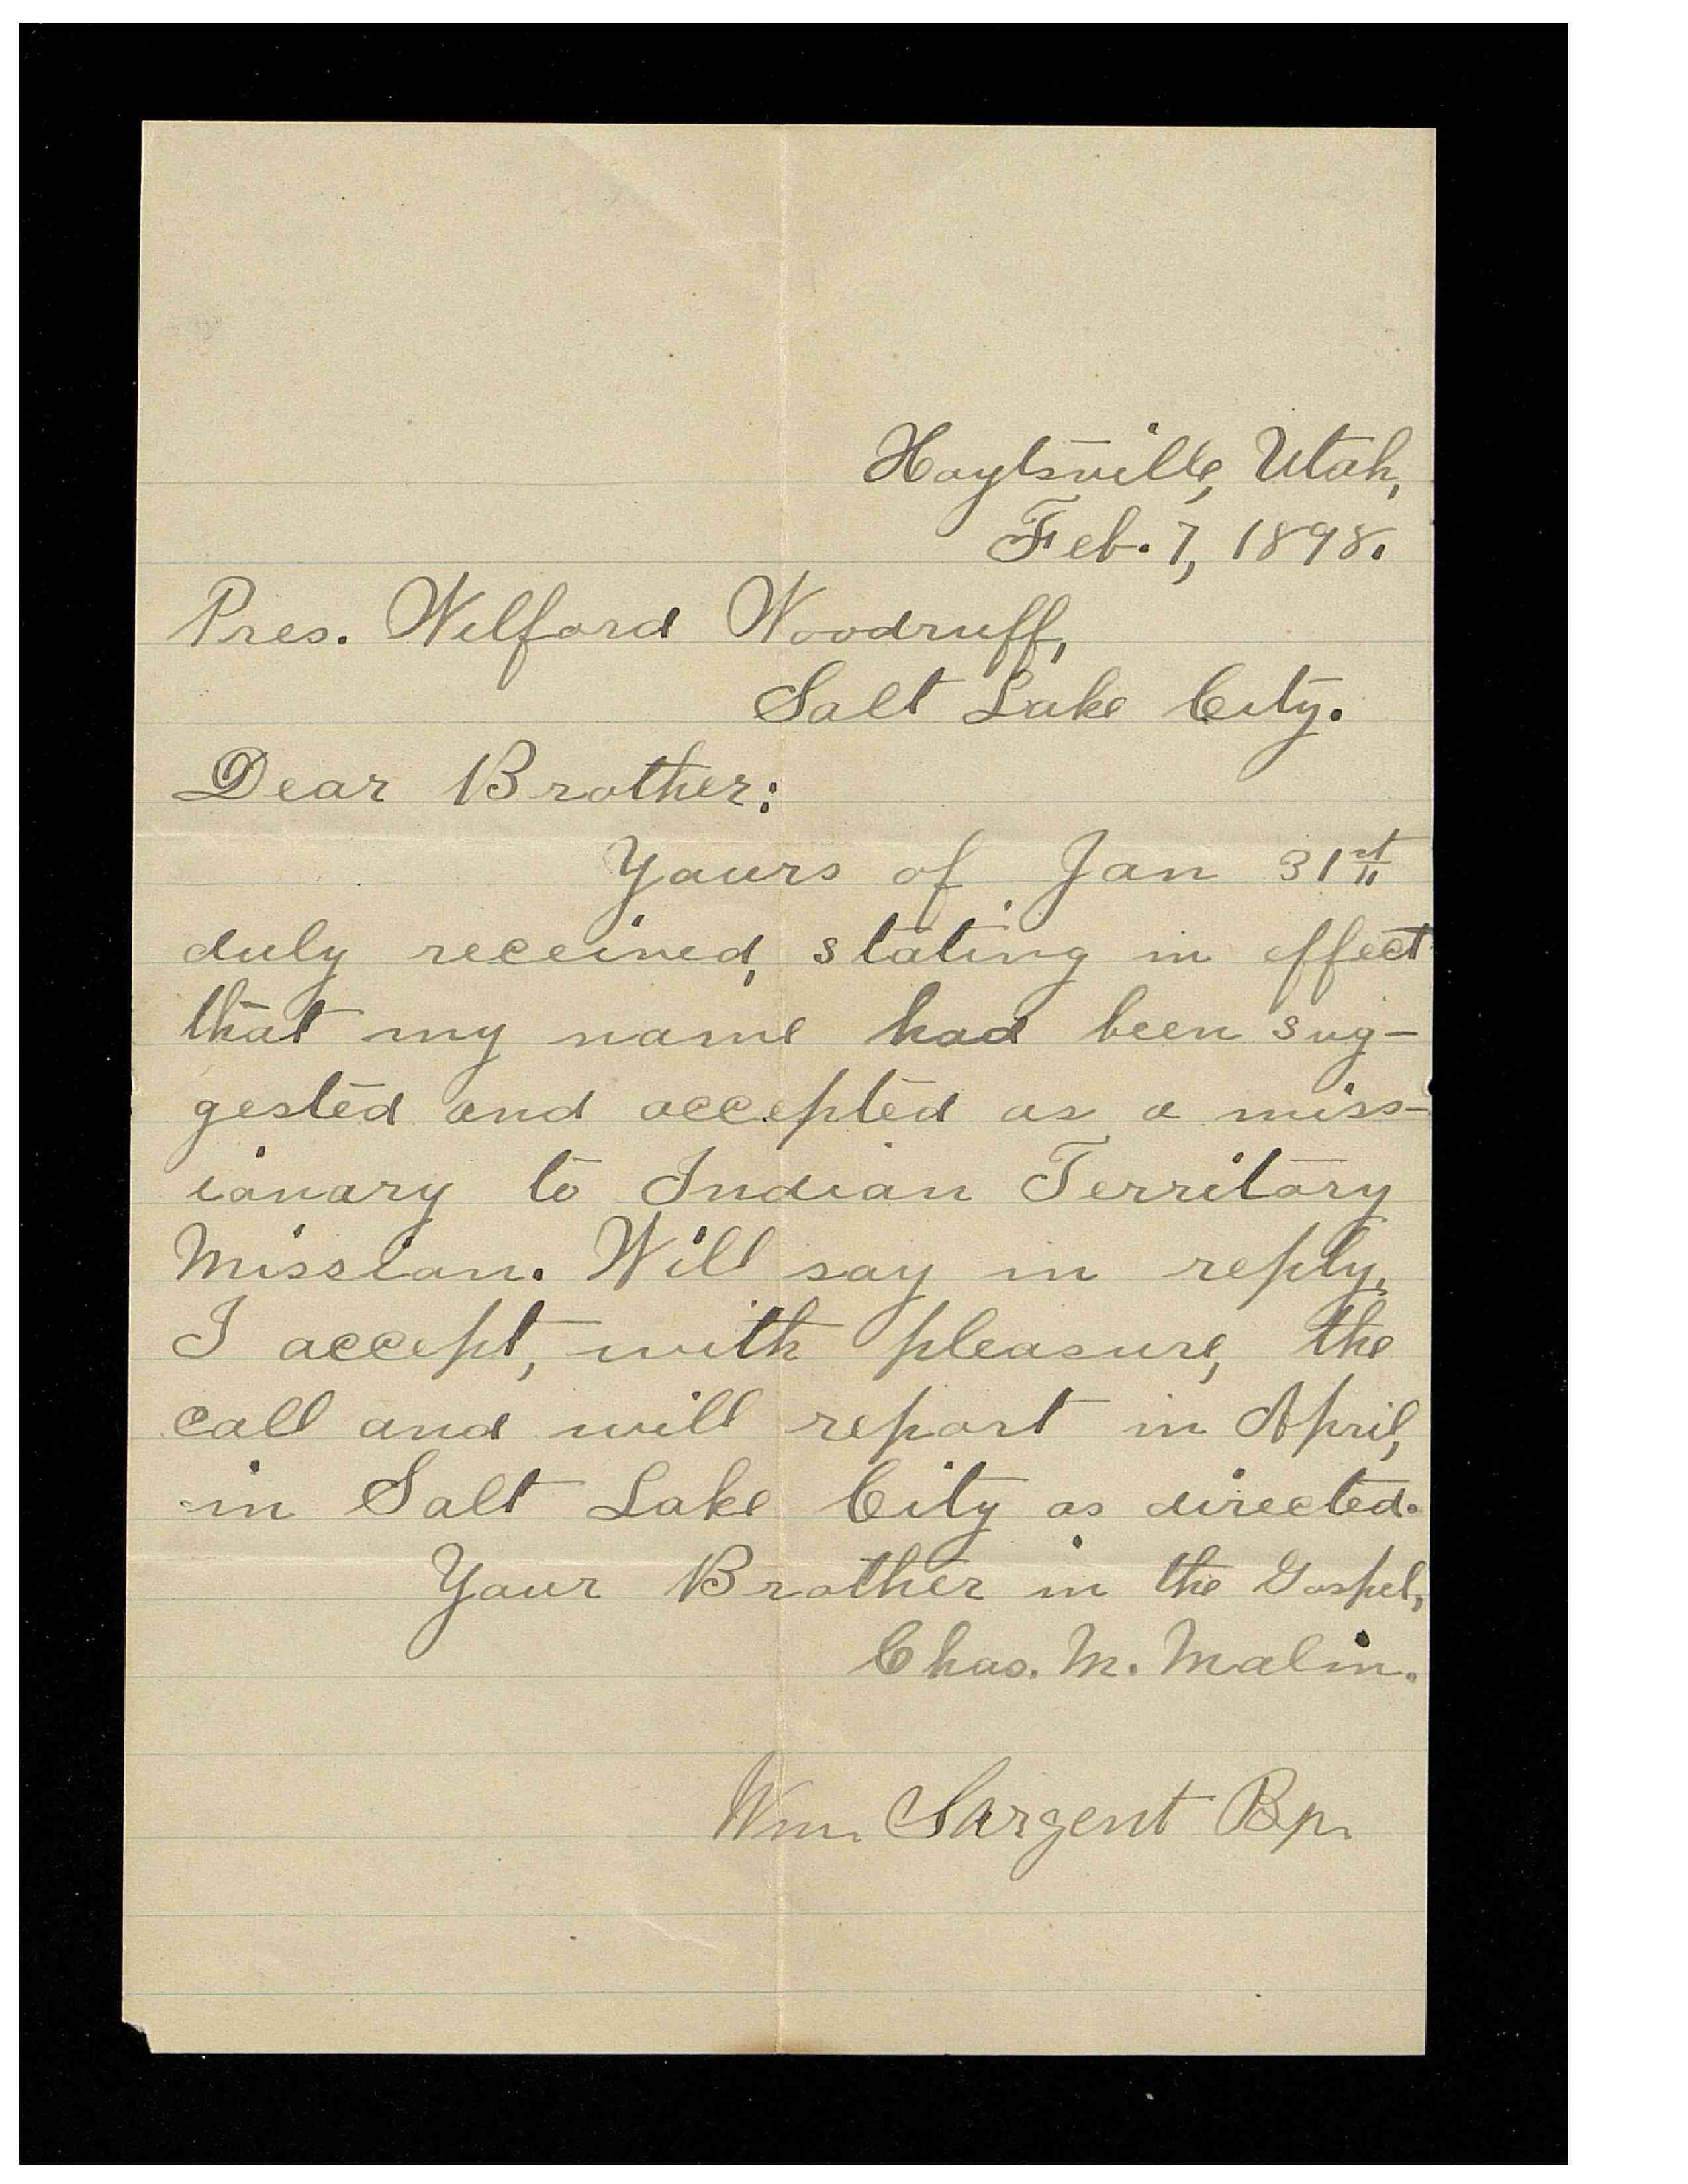 Hoytsville, Utah,
Feb. 7, 1898.
Pres. Wilford Woodruff,
Salt Lake City.
Dear Brother:
Yours of Jan 31st
duly received, stating in effect
that my name had been sug-
gested and accepted as a miss-
ionary to Indian Territory
Mission. Will say in reply,
I accept, with pleasure, the
call and will report in April,
in Salt Lake City as directed.
Your Brother in the Gospel,
Chas. M. Malin.
Wm. Sargent Bp.